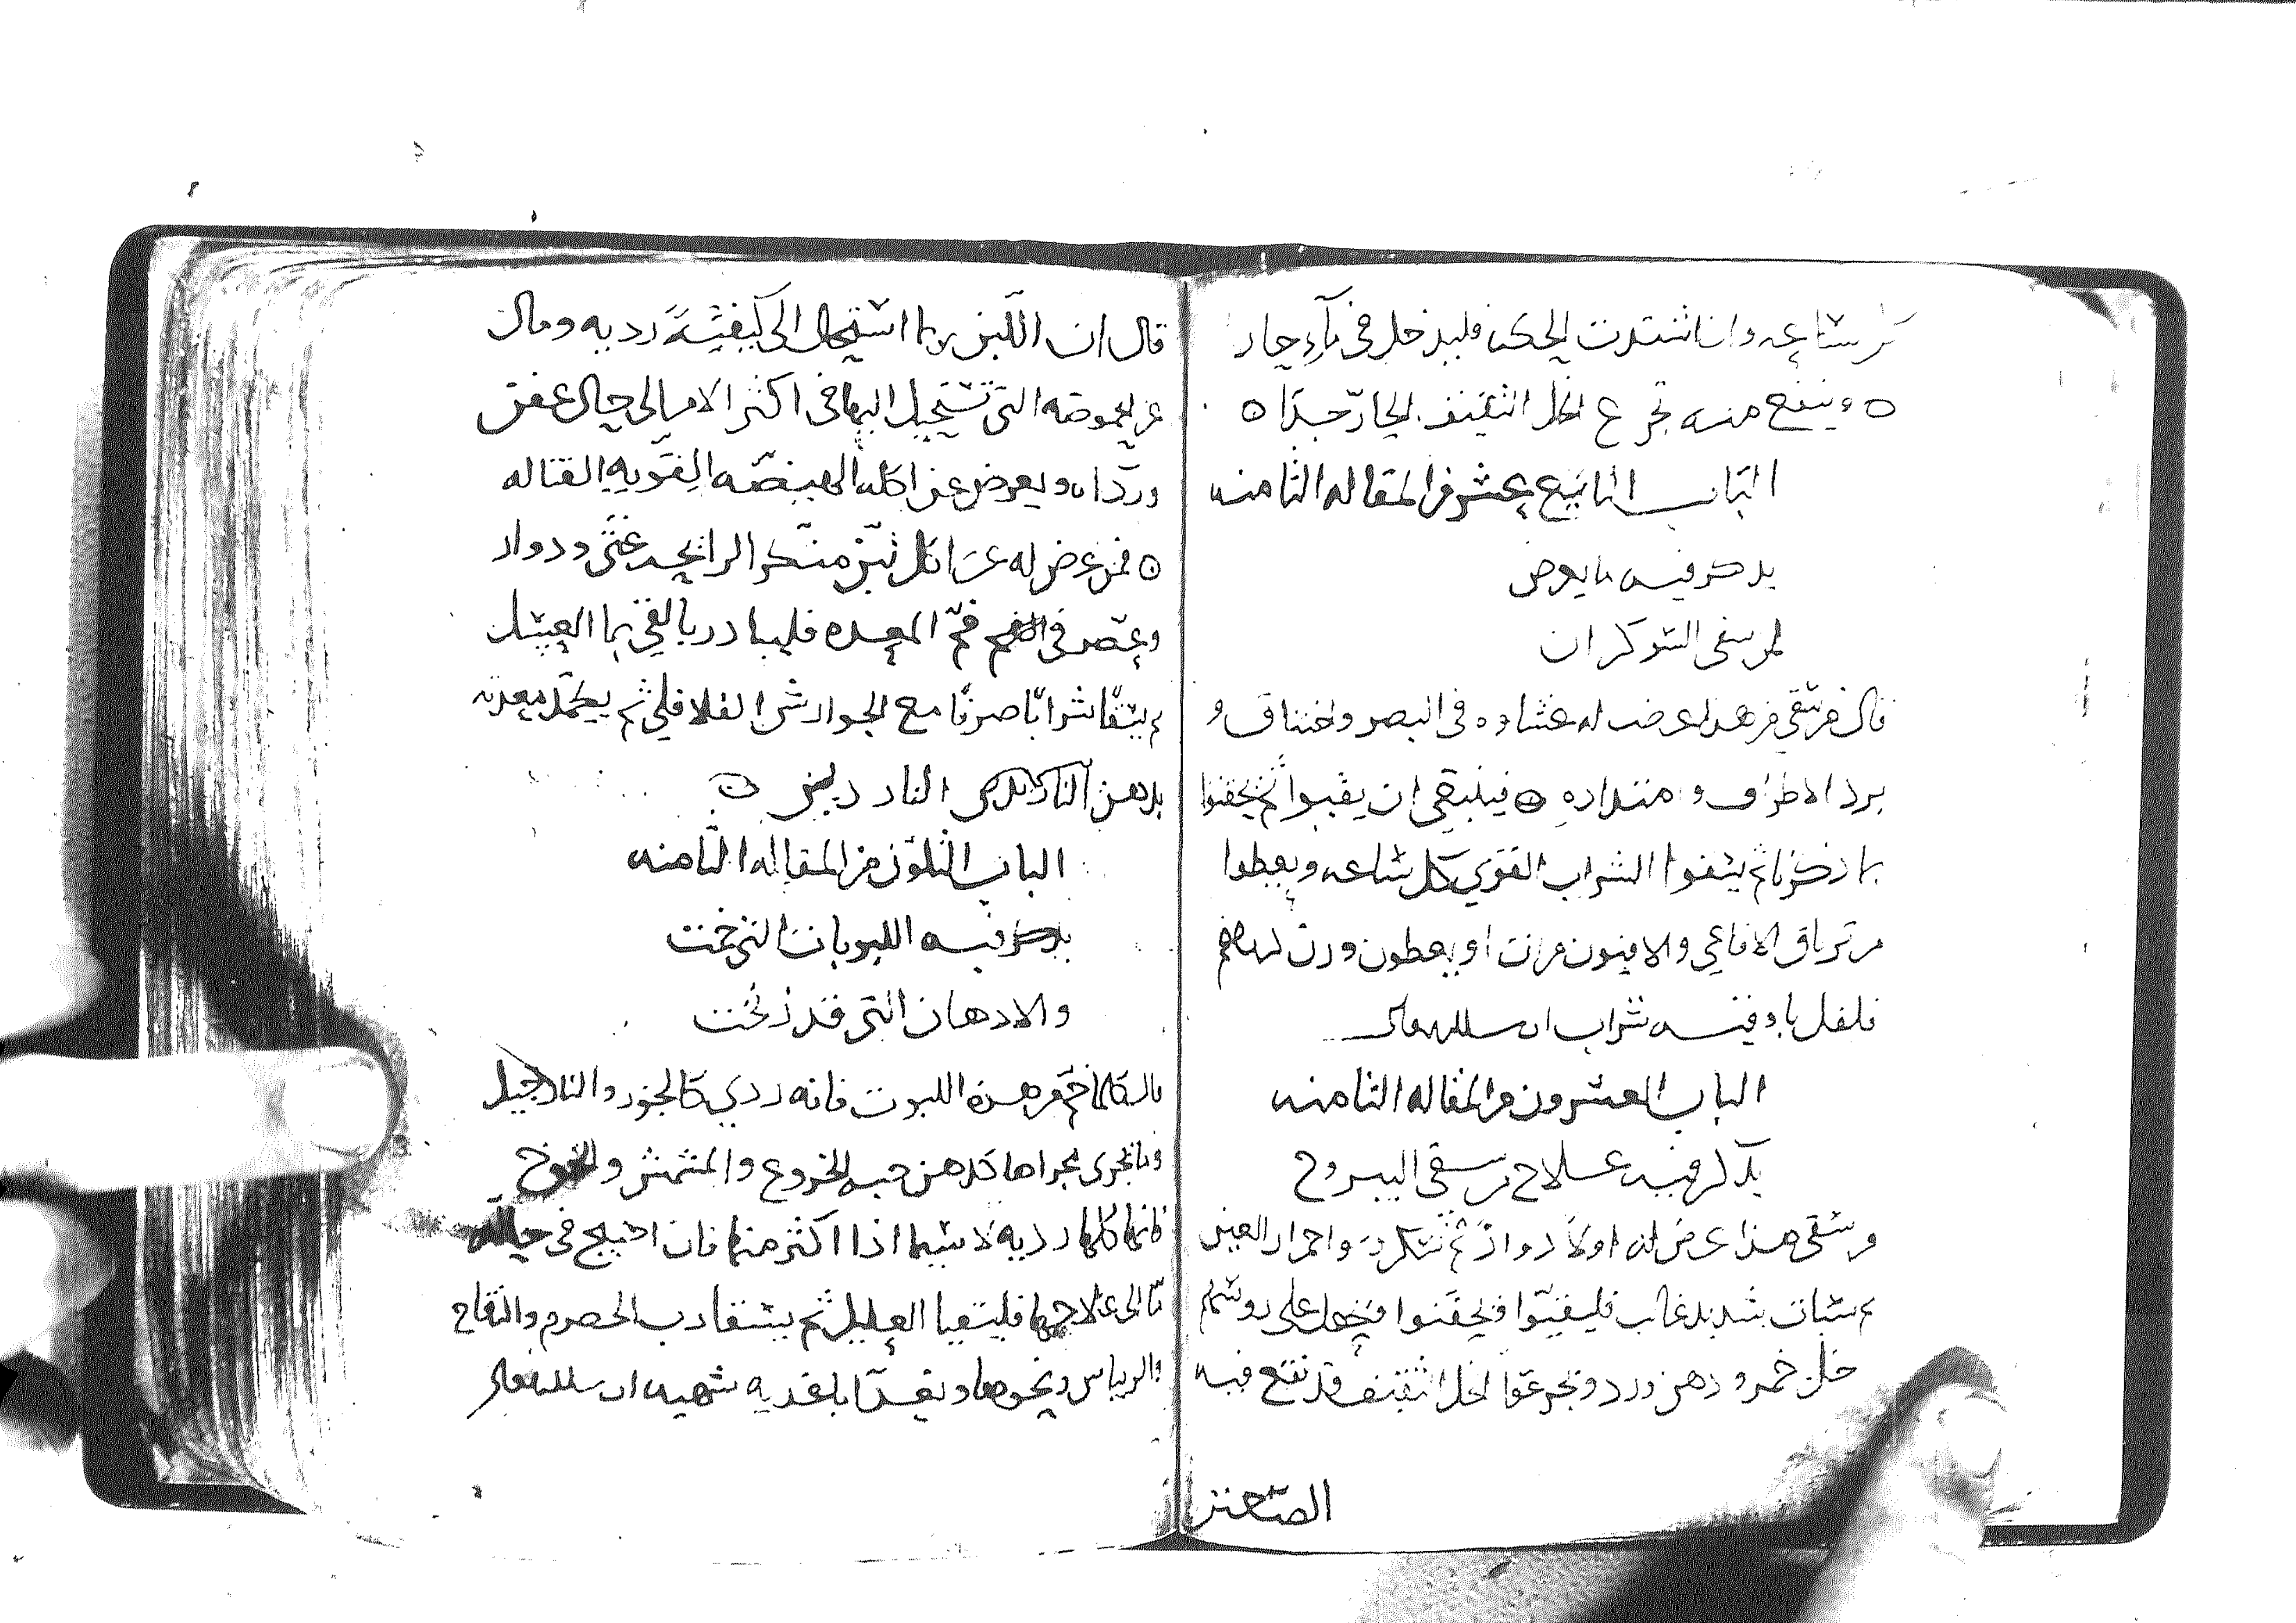 ساعه وان اشتدت الحكه فليدخل في ماء حار
وينفع منه تجرع الخل الثقيف الحار جدا
الباب التاسع عشر من المقاله الثامنه
يذكر فيه ما يعرض
لمن سقى الشوكران
قال من سقي من هذا عرض له غشاوه في البصر واختناق و
برد الاطراف وامتداده فينبغي ان يقيوا ثم يحقنوا
بما ذكرنا ثم يسقوا الشراب القوي كل ساعه ويعطوا
من ترياق الافاعي والافيون مرات او يعطون وزن درهم
فلفل باوقيه شراب ان شا الله تعالى
الباب العشرون من المقاله الثامنه
يذكر فيه علاج من سقى اليبروح
من سقى هذا عرض له اولا دوار ثم سكر واحمرار العين
ثم سبات شديد غالب فليقيوا ويحقنوا ويجعل على روسهم
خل خمر ودهن ورد وتجرعوا الخل الثقيف قد نقع فيه
الصعتر
قال ان اللبن ربما استحال الى كيفية رديه ومال
عن الحموضه التي تستحيل اليها في اكثر الامر الى حال عفن
وردااه ويعرض عن اكله الهيضه القويه القتاله
فمن عرض له عن اكل لبن منكر الرايحه غثى ودوار
وعصر في فم المعده فليبادر بالقي بما العسل
ثم يسقا شرابا صرفا مع الجوارشن الفلافلي ثم يكمد معدته
بدهن الناردين
الباب الثلثون من المقاله الثامنه
يذكر فيه اللبوبات التي زنخت
والادهان التي قد زنخت
قال كلما زنخ من هذه اللبوب فانه ردي كالجوز والنارجيل
وما يجرى مجراها كدهن حب الخروع والمشمش والخوخ
فانها كلها رديه لا سيما اذا اكثر منها فان احتيج في حاله
ما الى علاجها فليتقيا العليل ثم يسقا رب الحصرم والتفاح
والريباس ونحوها ويغدا باغديه شهيه ان شا الله تعالى